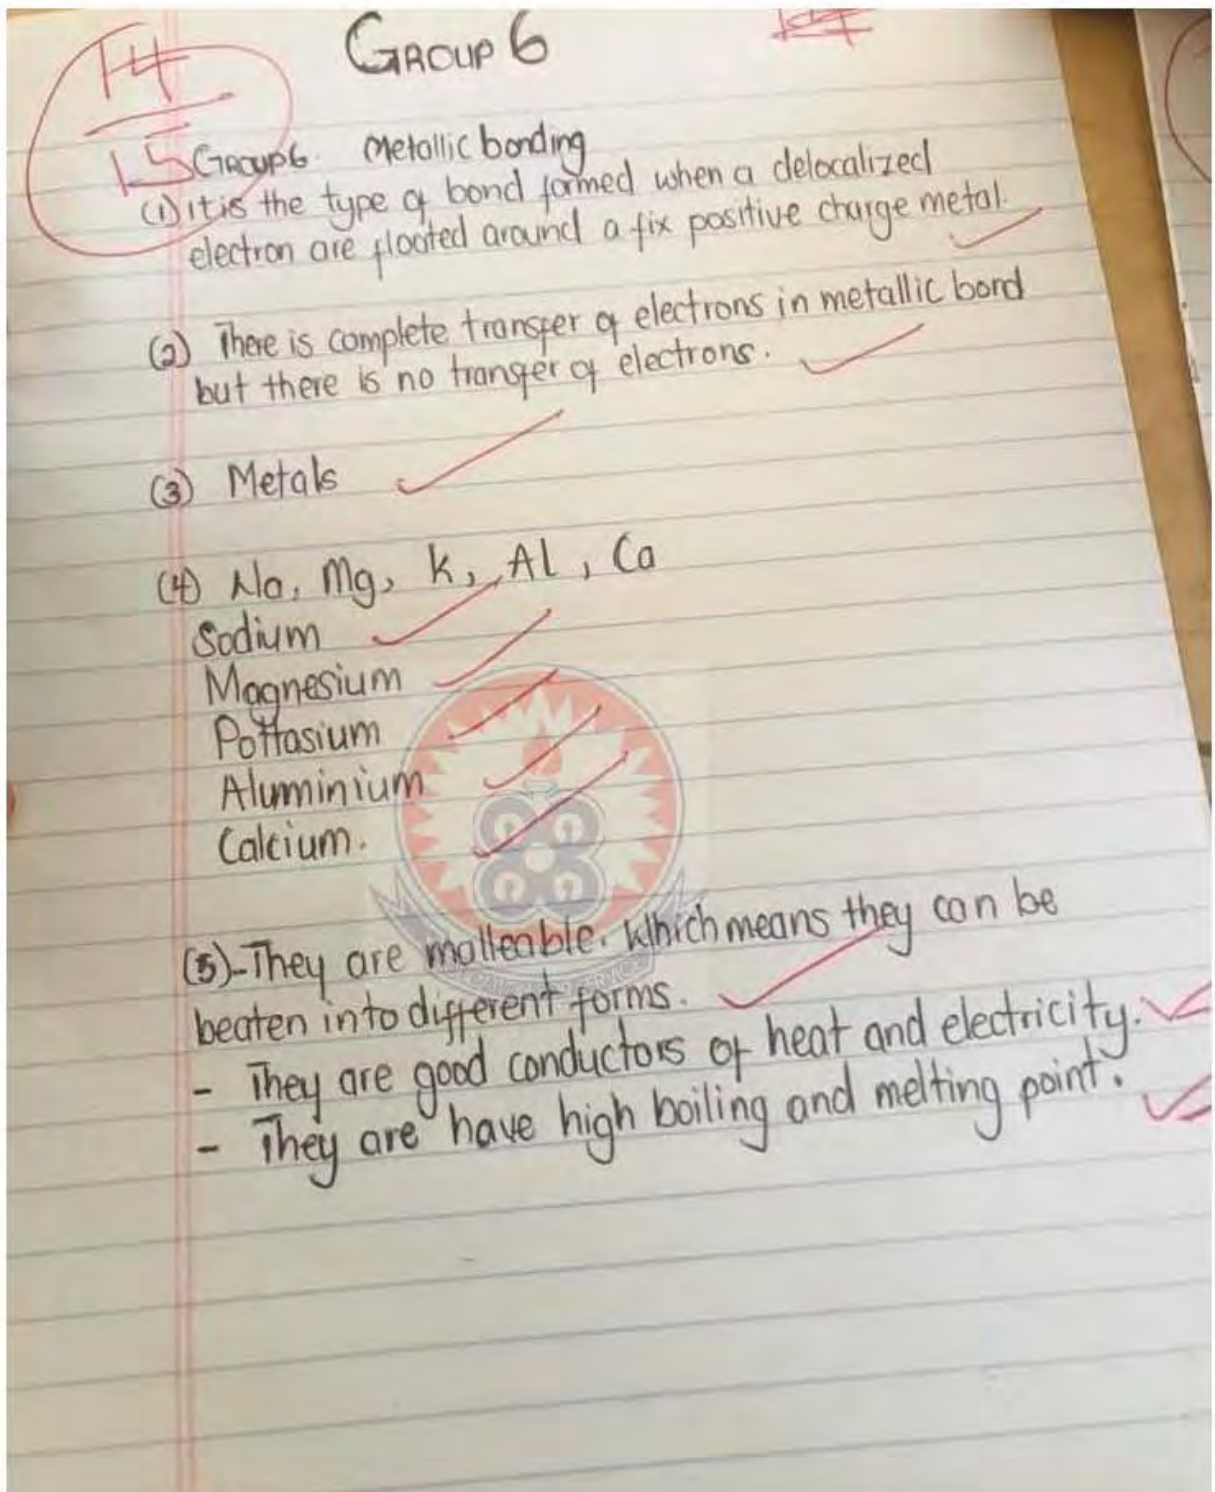 GROUP 6
14
15
GROUP 6. Metallic bonding
(1) it is the type of bond formed when a delocalized
electron are floated around a fix positive charge metal.
(2) There is complete transfer of electrons in metallic bond
but there is no transfer of electrons.
(3) Metals
(4) Na, Mg, K, Al, Ca
Sodium
Magnesium
Pottasium
Aluminium
Calcium.
(5) - They are malleable. Which means they can be
beaten into different forms.
- They are good conductors of heat and electricity.
- They are have high boiling and melting point.